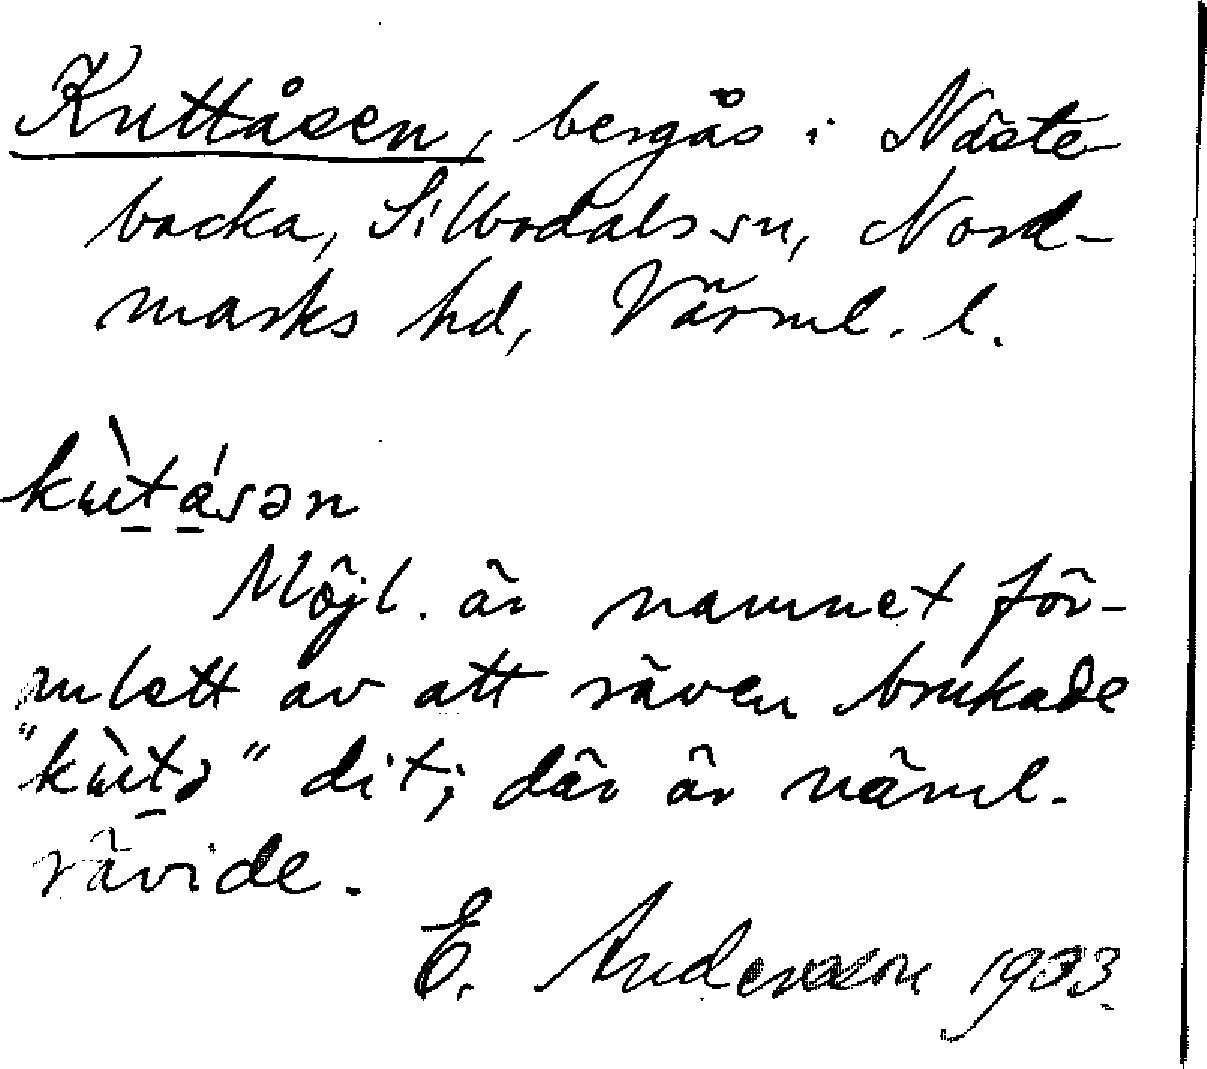 Kuttåsen, bergås i Näste-
backa, Silbodals sn, Nord-
marks hd, Värml. l.
kùt̠á̠sən
Möjl. är namnet för-
anlett av att räven brukade
"kùt̠ə" dit; där är näml.
rävide.
E. Andersson 1933.